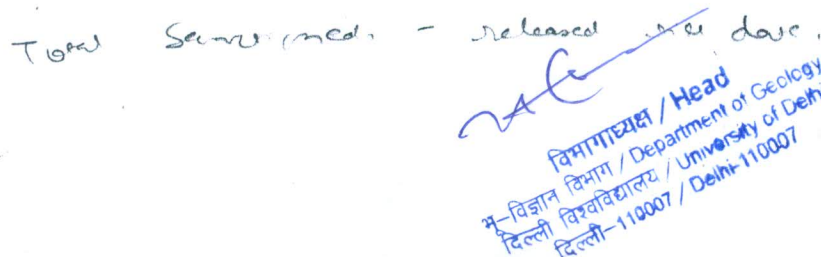 Total - released date.
विभागाध्यक्ष / Head
भू-विज्ञान विभाग / Department of Geology
दिल्ली विश्वविद्यालय / University of Delhi
दिल्ली-110007 / Delhi-110007